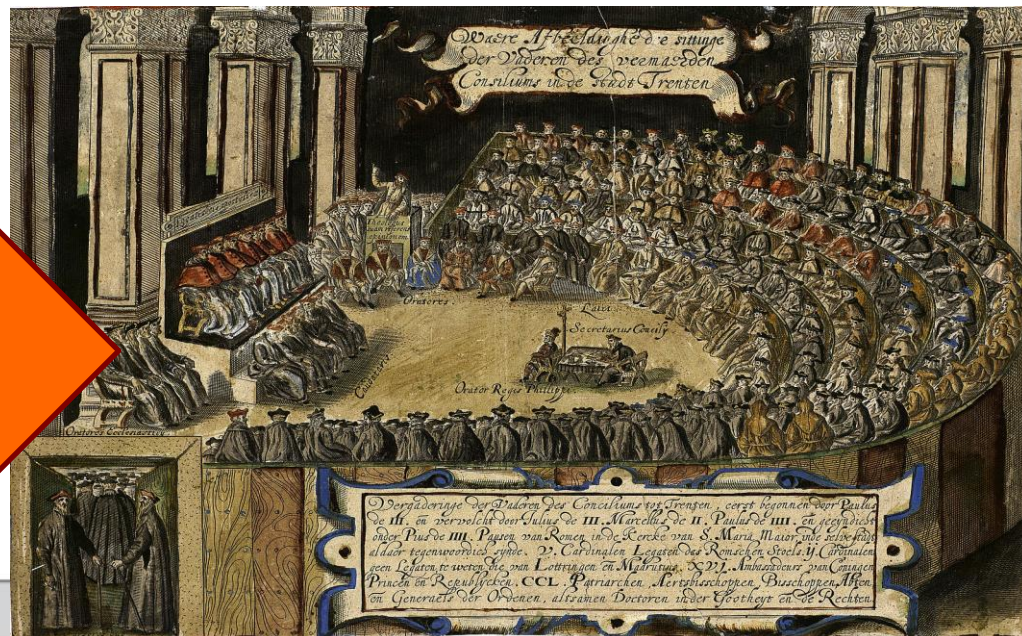 Waere Afbeeldinghe d'e sittinge
der Vaderen des vermaerden
Consiliums in de stadt Trenten
Oratores.
Secretarius Concily
Orator Regis Philippi
Oratores Ecclesiastici
Vergaderinge der Vaderen des Conciliums tot Trenten, eerst begonnen door Paulus
de III. en vervolcht door Julius de III. Marcellus de II. Paulus de IIII. en geeyndicht
onder Pius de IIII. Pausen van Romen in de Kercke van S. Maria Maior, inde selve stadt
aldaer tegenwoordich synde. V. Cardinalen Legaten des Romschen Stoels. ij. Cardinalen
geen Legaten, te weten die van Lottringen en Madrutius, XVI. Ambassadeurs van Coningen
Princen en Republycken. CCL. Patriarchen Aertsbisschoppen, Bisschoppen, Abten
en Generaels der Ordenen, altsamen Doctoren in der Gootheyt en de Rechten